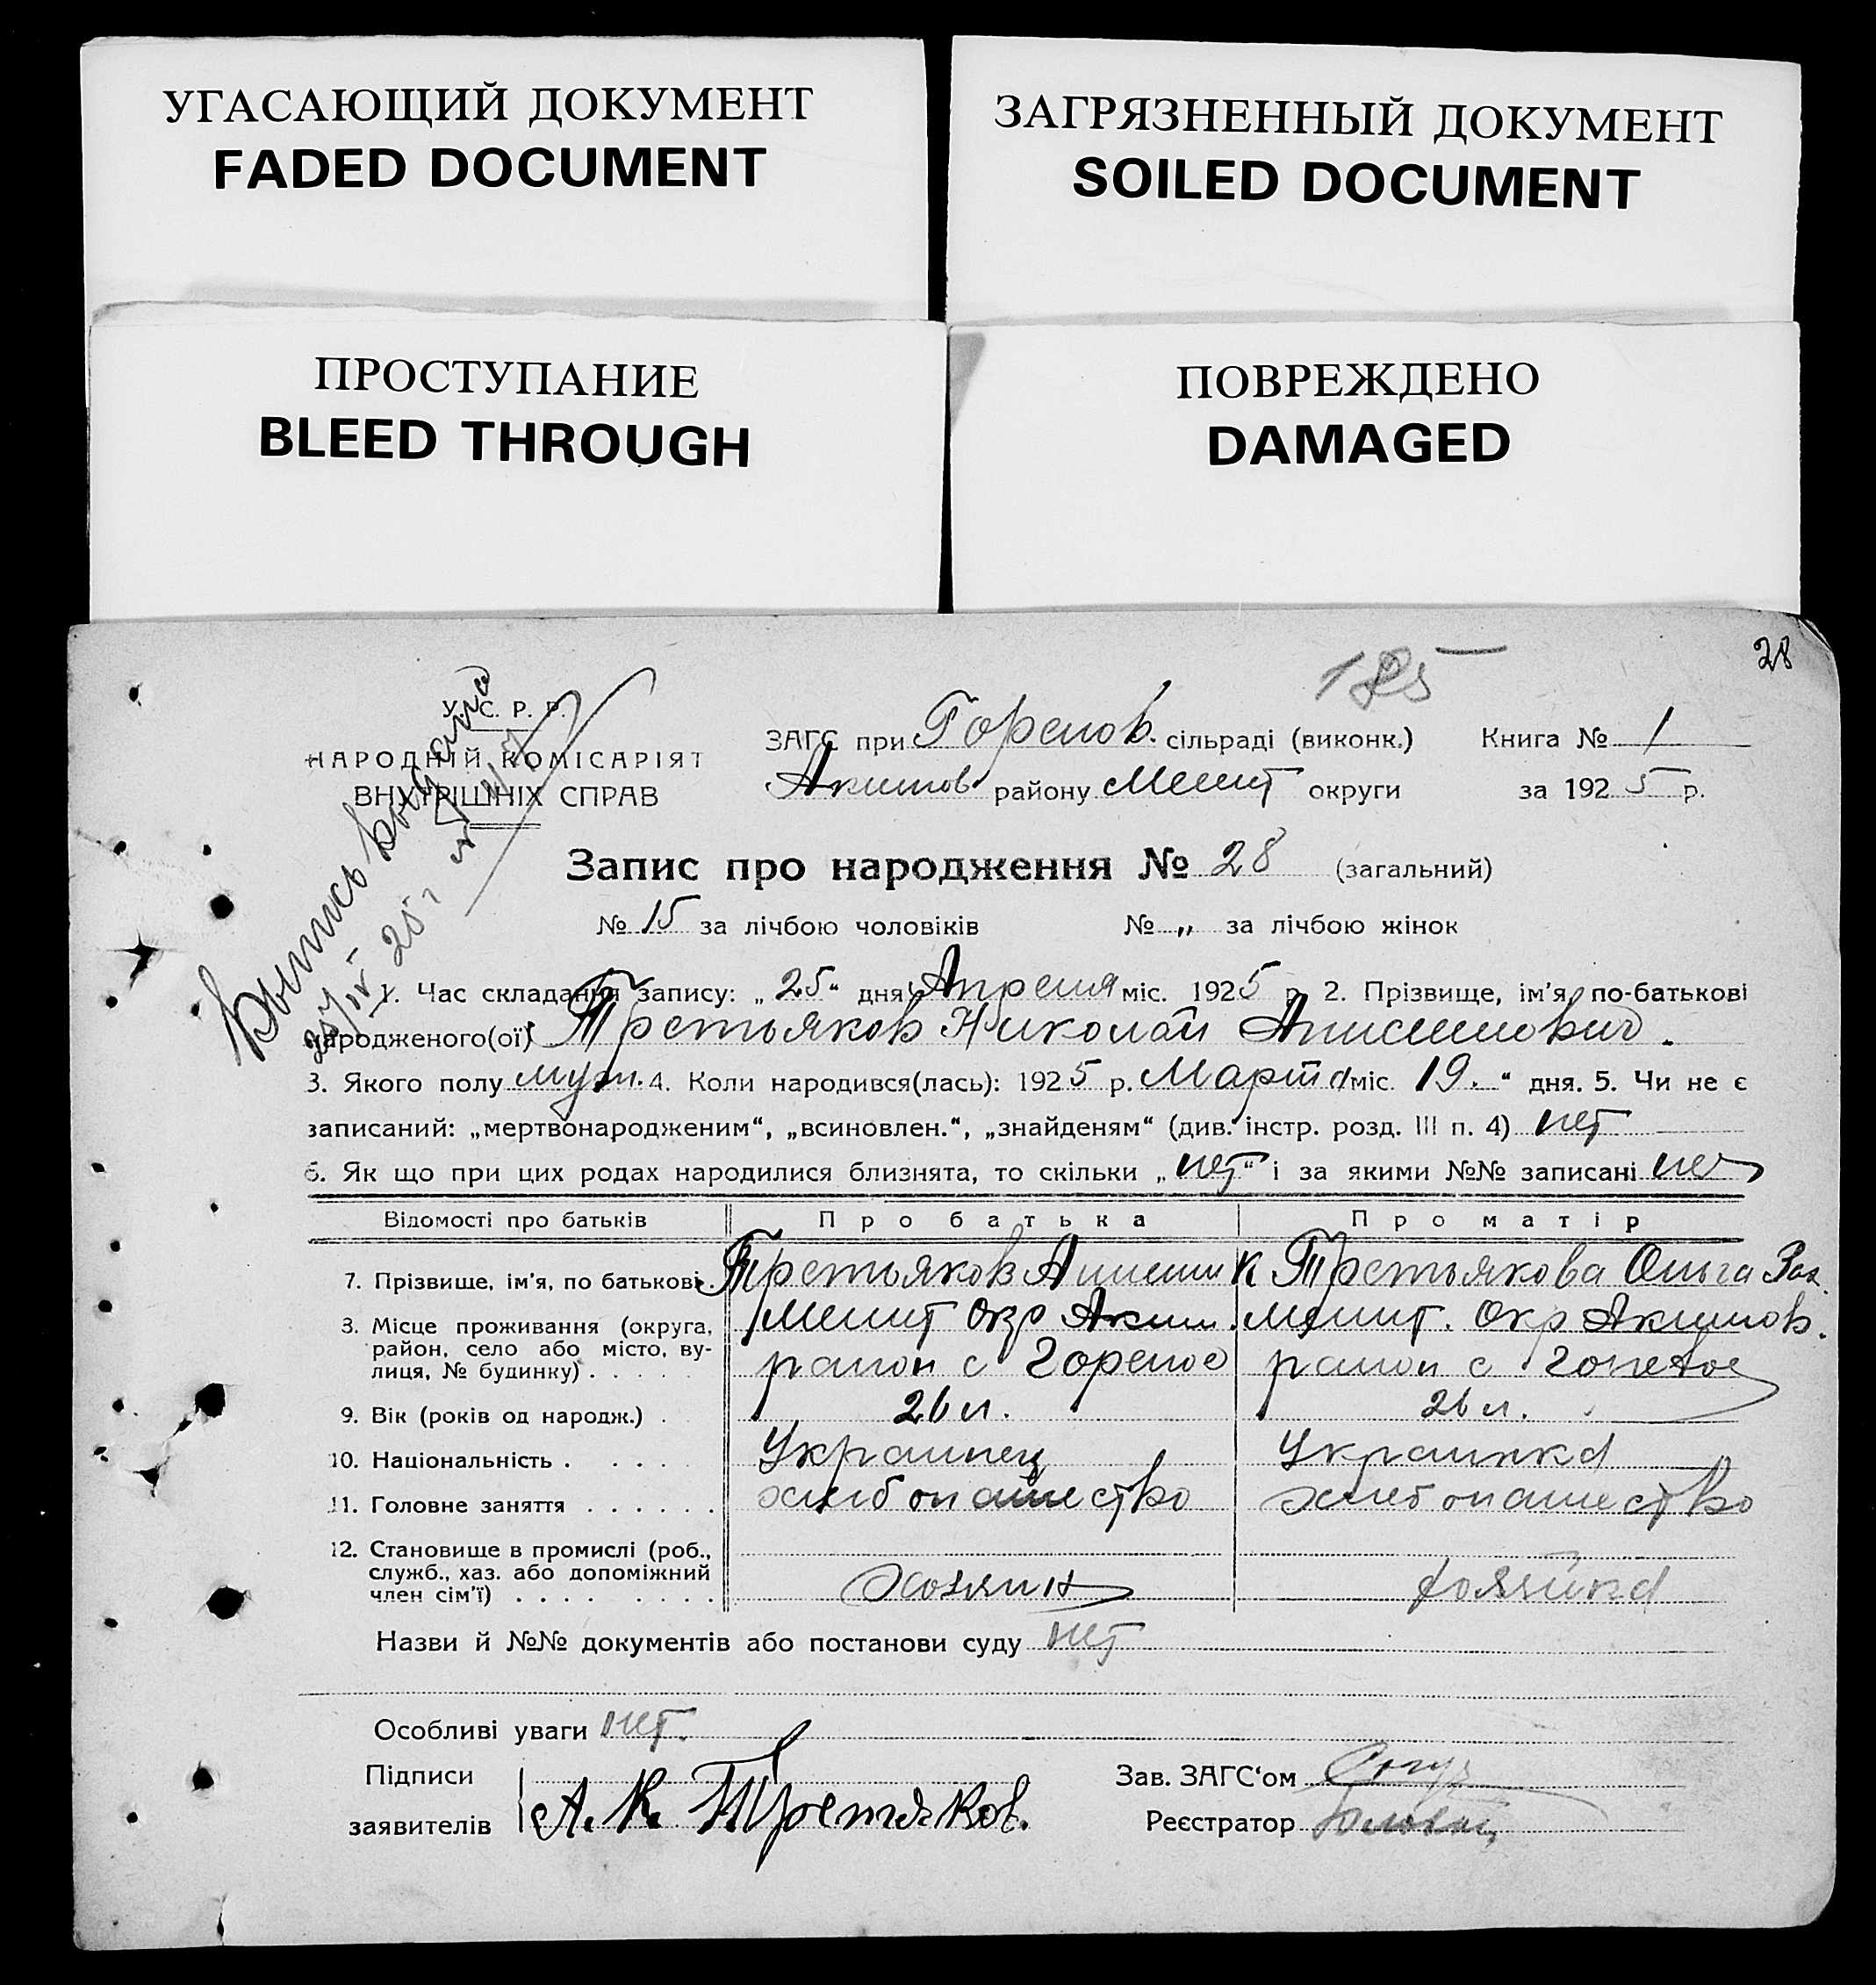 УГАСАЮЩИЙ ДОКУМЕНТ
FADED DOCUMENT
ЗАГРЯЗНЕННЫЙ ДОКУМЕНТ
SOILED DOCUMENT
ПРОСТУПАНИЕ
BLEED THROUGH
ПОВРЕЖДЕНО
DAMAGED
28
185
У. С. Р. Р.
НАРОДНІЙ КОМІСАРІЯТ
ВНУТРІШНІХ СПРАВ
Выпись выдана
25/IV 25 г
ЗАГС при Горелов. сільраді (виконк.) Книга № 1
Акимов району Мелит округи за 1925 р.
Запис про народження № 28 (загальний)
№ 15 за лічбою чоловіків № „ за лічбою жінок
1. Час складання запису: „25“ дня Апреля міс. 1925 р. 2. Прізвище, ім'я, по-батькові
народженого(ої) Третьяков Николай Анисимович.
3. Якого полу муж. 4. Коли народився(лась): 1925 р. Марта міс. 19. “ дня. 5. Чи не є
записаний: „мертвонародженим“, „всиновлен.“, „знайденям“ (див. інстр. розд. III п. 4) нет
6. Як що при цих родах народилися близнята, то скільки „нет“ і за якими №№ записані нет
Відомості про батьків Про батька Про матір
7. Прізвище, ім'я, по батькові. Третьяков Анисим К Третьякова Ольга
8. Місце проживання (округа, район, село або місто, вулиця, № будинку) . . . . .
Мелит Окр Аким. Мелит. Окр Акимов.
район с Горелое район с Горелое
9. Вік (років од народж.) . 26 л. 26 л.
10. Національність . . . . . Украинец Украинка
11. Головне заняття . . . . . . хлебопашество хлебопашество
12. Становище в промислі (роб., служб., хаз. або допоміжний член сім'ї) . . . . . . . .
Хозяин хозяйка
Назви й №№ документів або постанови суду нет
Особливі уваги нет.
Підписи
заявителів А. К. Третяков.
Зав. ЗАГС‘ом
Реєстратор